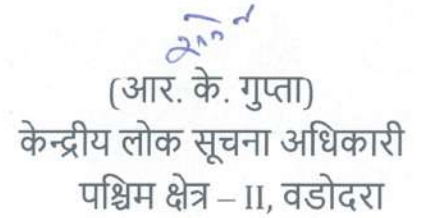 (आर. के. गुप्ता)
केन्द्रीय लोक सूचना अधिकारी
पश्चिम क्षेत्र – II, वडोदरा